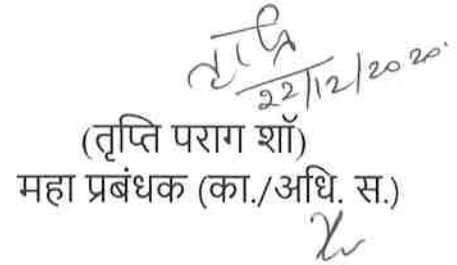 तृप्ति
22/12/2020
(तृप्ति पराग शॉ)
महा प्रबंधक (का./अधि. स.)